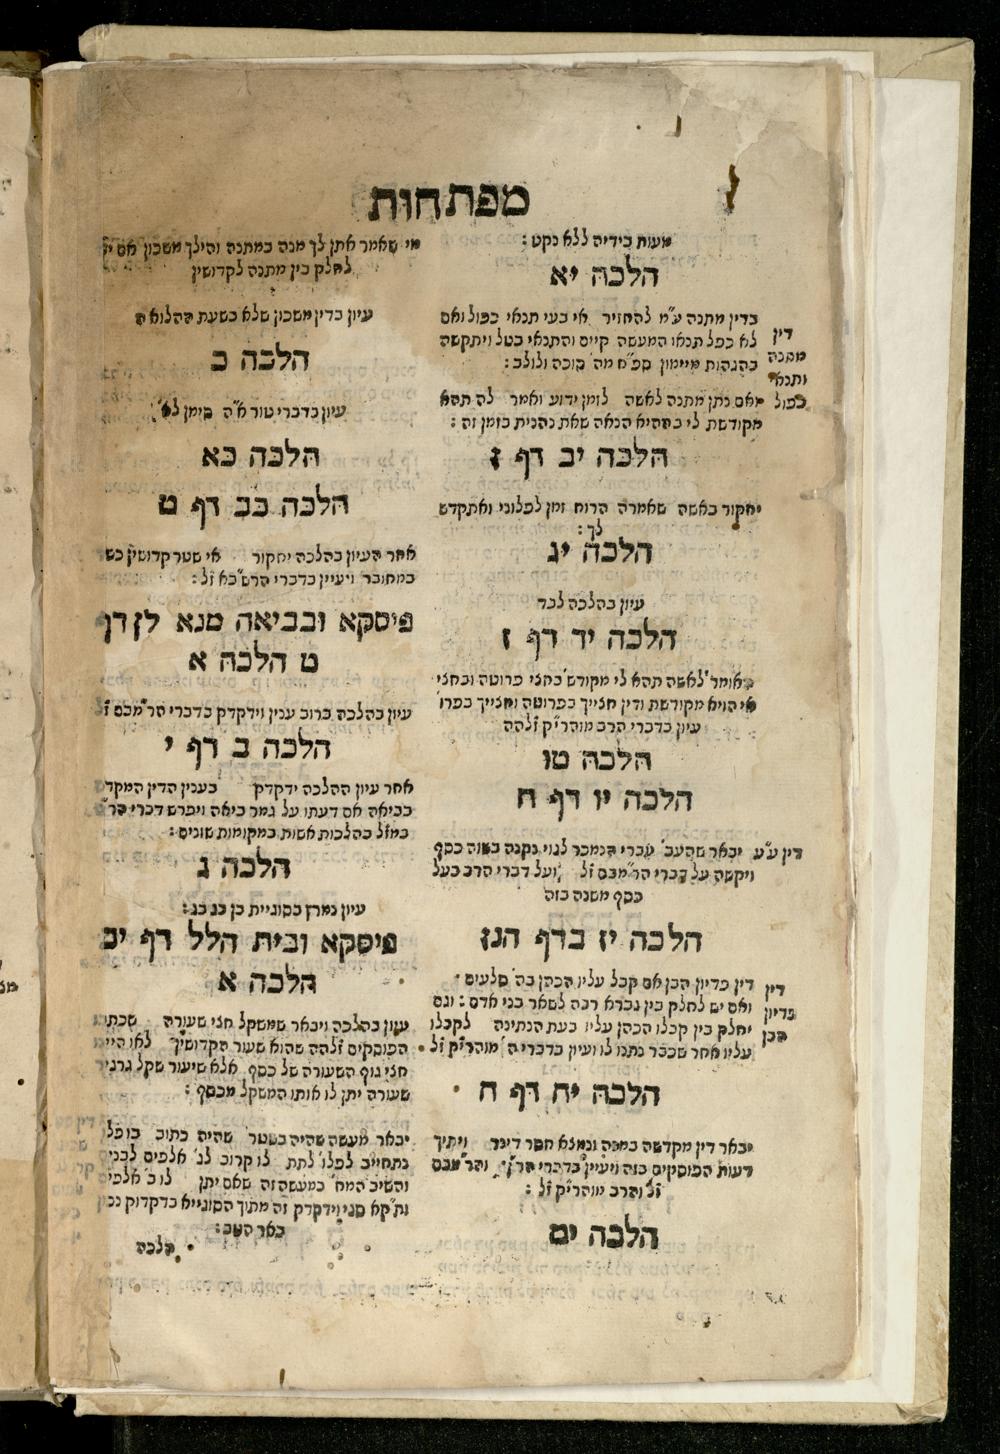 מפתחות
מעות בידיה ללא נקט :
הלכה יא
בדין מתנה ע״מ להחזיר אי בעי תנאי כפול ואם
לא כפל תנאו המעשה קיים והתנאי בטל ויתקשה
בהגהות מיימון ספ״ח מה׳ סוכה ולולב :
ואם נתן מתנה לאשה לזמן ידוע ואמר לה תהא
מקודשת לי בההיא הנאה שאת נהנית בזמן זה :
דין
מתנה
ותנאי
כפול
הלכה יב דף ז
יחקור באשה שאמרה הרוח זמן לפלוני ואתקדש
לך :
הלכה יג
עיון בהלכה לבד
הלכה יד דף ז
האומר לאשה תהא לי מקודש׳ בחצי פרוטה ובחצי
אי הויא מקודשת ודין חצייך בפרוטה וחצייך בפרו׳
עיון בדברי הרב מוהרי״ק זלהה
הלכה טו
הלכה יו דף ח
דין ע״ע יבאר שהעב׳ עברי הנמכר לגוי נקנה בשוה כסף
ויקשה על דברי הר״מבם ז״ל ועל דברי הרב בעל
כסף משנה בזה
הלכה יז בדף הנז
דין פדיון הבן אם קבל עליו הכהן בה׳ סלעים
ואם יש לחלק בין גברא רבה לשאר בני אדם : וגם
יחלק בין קבלו הכהן עליו בעת הנתינה לקבלו
עליו אחר שכבר נתנו לו ועיון בדברי ה׳ מוהרי״ק ז״ל
דין
פדיון
הבן
הלכה יח דף ח
יבאר דין מקדשה במנה ונמצא חסר דינר ויתיך
דעות הפוסקים בזה ויעיין בדברי הר״ן והר״מבם
ז״ל והרב מוהרי״ק ז״ל :
הלכה יט
מי שאמר אתן לך מנה במתנה והילך משכון אם י
לחלק בין מתנה לקדושין
עיון בדין משכון שלא בשעת ההלואה
הלכה כ
עיון בדברי טור א״ה סימן ל״א
הלכה כא
הלכה כב דף ט
אחר העיון בהלכה יחקור אי שטר קדושין כש
במחובר ויעיין בדברי הרשב״א ז״ל :
פיסקא ובביאה מנא לן דף
ט הלכה א
עיון בהלכה ברוב ענין וידקדק בדברי הר״מבם ז״ל
הלכה ב דף י
אחר עיון ההלכה ידקדק בענין הדין המקד
בביאה אם דעתו על גמר ביאה ויפרש דברי הר״
במז״ל בהלכות אשות במקומות שונים :
הלכה ג
עיון נמרץ בסוגיית בן בג בג :
פיסקא ובית הלל דף יב
הלכה א
עיון בהלכה ויבאר שמשקל חצי שעורה שכתו
הפוסקים זלהה שהוא שעור הקדושין לאו היי
חצי גוף השעורה של כסף אלא שיעור שקל גרגיר
שעורה יתן לו אותו המשקל מכסף :
יבאר מעשה שהיה בשטר שהיה כתוב בו פלו
נתחייב לפלו׳ לתת לו קרוב לג׳ אלפים לבני
והשיב המח׳ במעשה זה שאם יתן לו ב׳ אלפי
ות״קא סגי וידקדק זה מתוך הסוגייא בדקדוק נכו
באר היטב :
הלכה